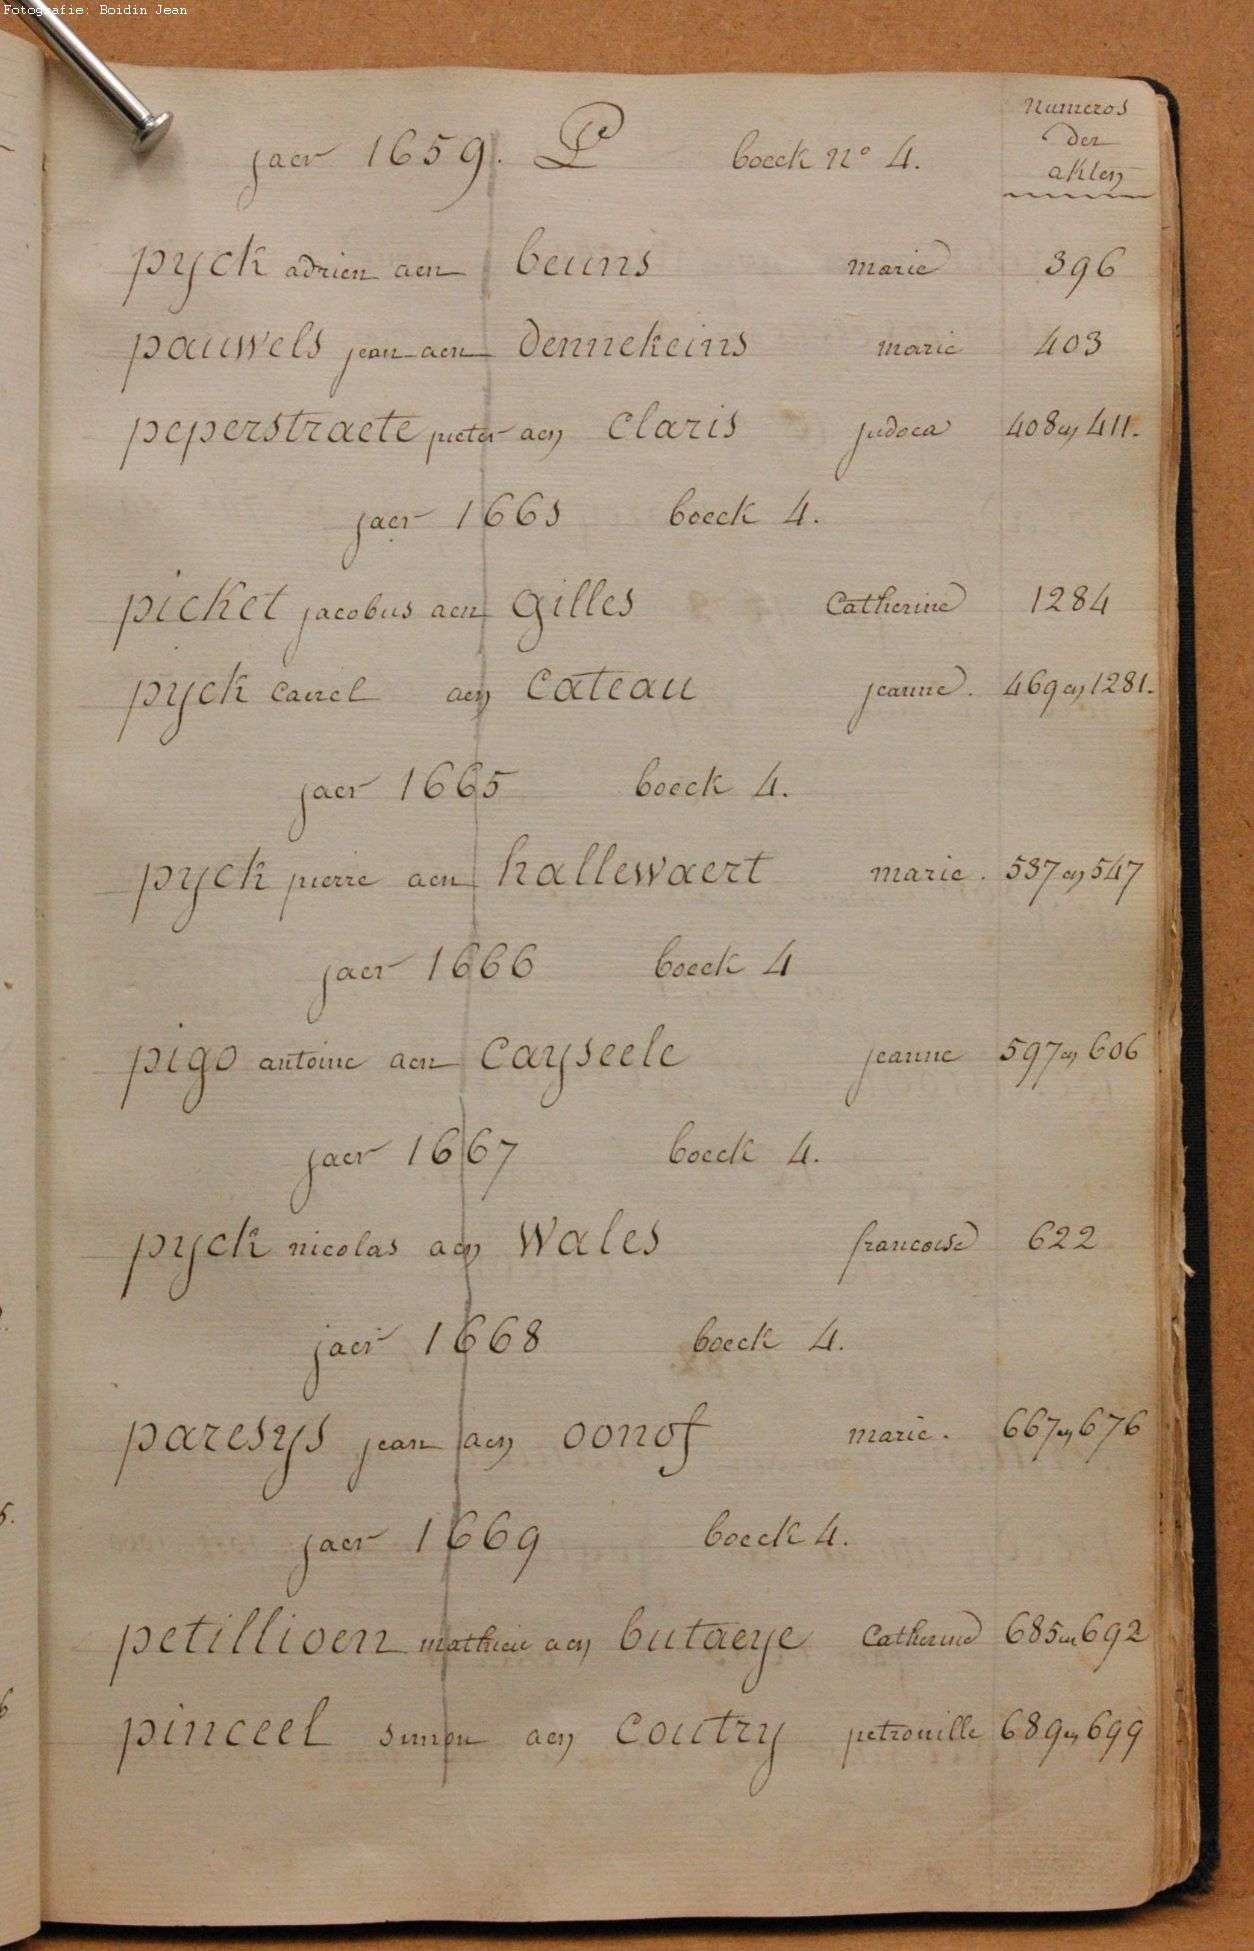 Fotografie: Boidin Jean
jaer 1659. P boeck n° 4. Numeros der akten
pyck adrien aen beuns marie 396
pauwels jean aen dennekeins marie 403
peperstraete pieter aen Claris judoca 408 en 411.
jaer 1663 boeck 4.
picket jacobus aen Gilles Catherine 1284
pyck Carel aen Cateau jeanne. 469 en 1281.
jaer 1665 boeck 4.
pyck pierre aen hallewaert marie. 537 en 547
jaer 1666 boeck 4
pigo antoine aen Cayseele jeanne 597 en 606
jaer 1667 boeck 4.
pyck nicolas aen Wales francoise 622
jaer 1668 boeck 4.
paresys jean aen oonof marie. 667 en 676
jaer 1669 boeck 4.
petillioen mathieu aen butaeye Catherine 685 en 692
pinceel simon aen Coutry petronille 689 en 699